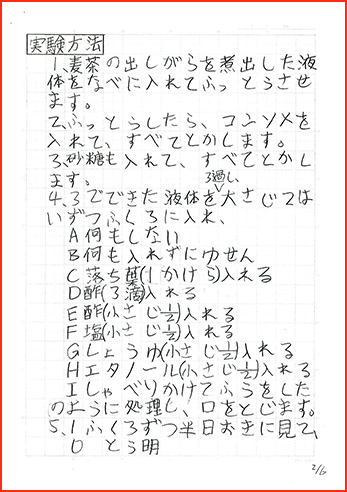 実験方法
1、麦茶の出しがらを煮出した液
体をなべに入れてふっとうさせ
ます。
2、ふっとうしたら、コンソメを
入れて、すべてとかします。
3、砂糖も入れて、すべてとかし
ます。
ろ過し
4、3でできた液体を大さじ2は
いずつふくろに入れ、
A何もしない
B何も入れずにゆせん
C落ち葉(1かけら)入れる
D酢(3滴)入れる
E酢(小さじ1/2)入れる
F塩(小さじ1/2)入れる
Gしょうゆ(小さじ1/2)入れる
Hエタノール(小さじ1/2)入れる
Iしゃべりかけてふうをした
のように処理し、口をとじます。
5、1ふくろずつ半日おきに見て、
0 とう明
2/6